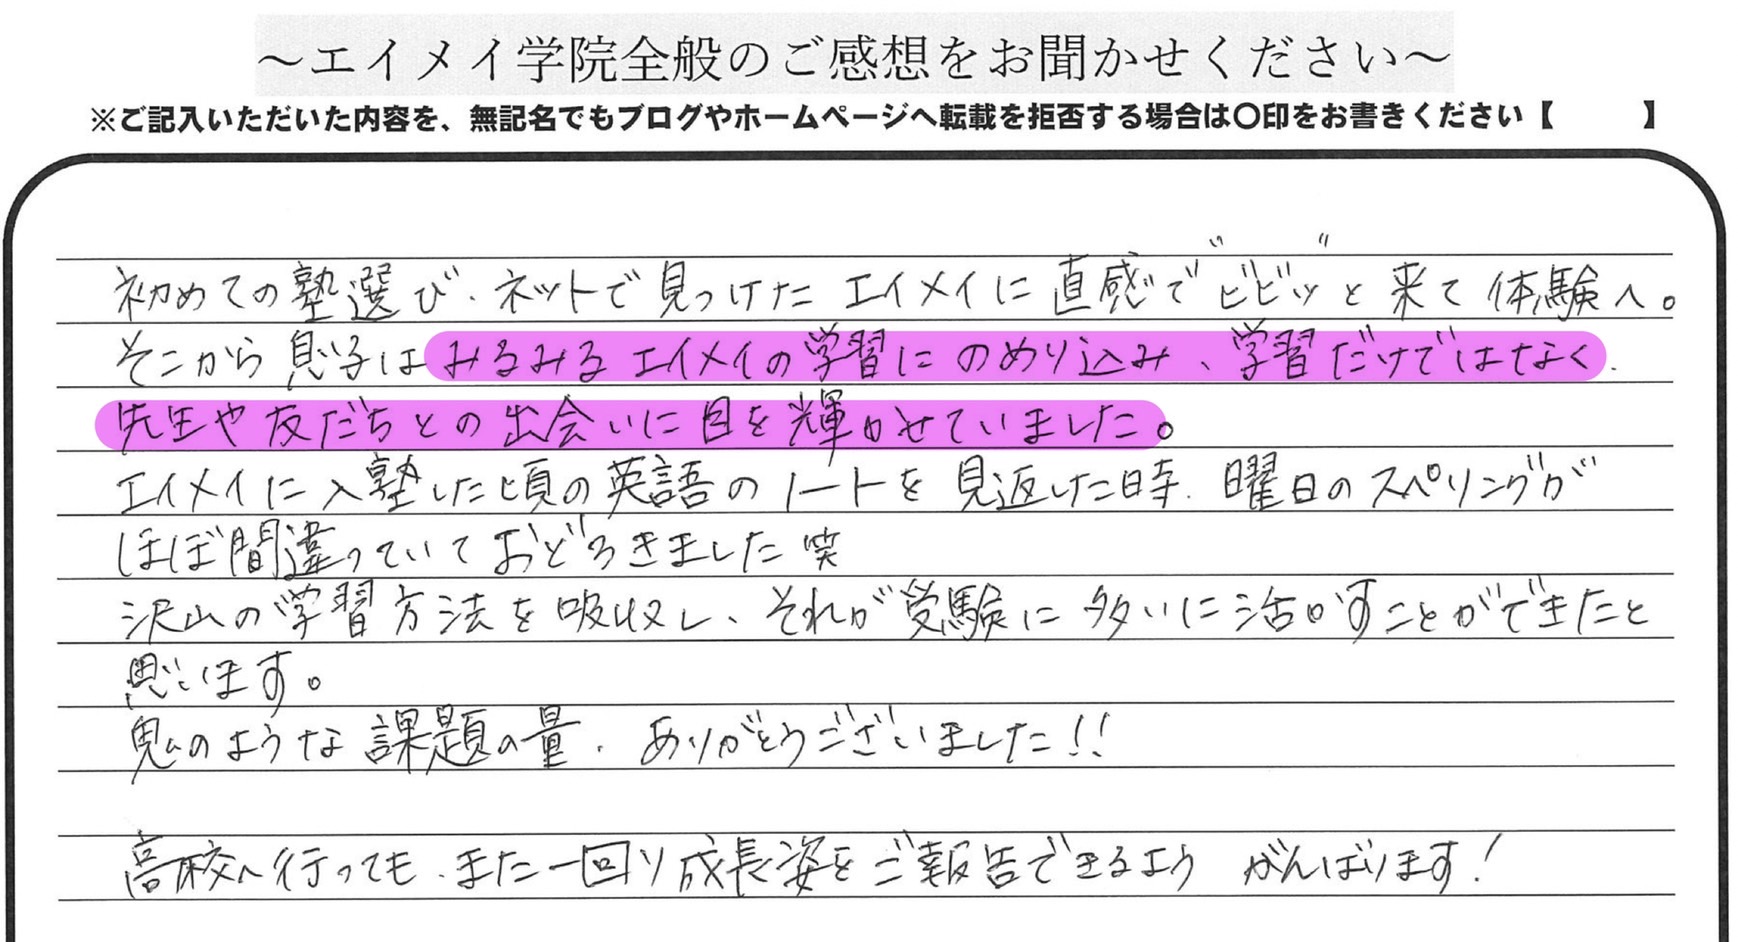 ～エイメイ学院全般のご感想をお聞かせください～
※ご記入いただいた内容を、無記名でもブログやホームページへ転載を拒否する場合は〇印をお書きください【　　】
初めての塾選び、ネットで見つけたエイメイに直感で"ビビッ"と来て体験へ。
そこから息子はみるみるエイメイの学習にのめり込み、学習だけではなく、
先生や友だちとの出会いに目を輝かせていました。
エイメイに入塾した頃の英語のノートを見返した時、曜日のスペリングが
ほぼ間違っていておどろきました笑
沢山の学習方法を吸収し、それが受験に多いに活かすことができたと
思います。
鬼のような課題の量、ありがとうございました!!
高校へ行っても、また一回り成長姿をご報告できるよう がんばります!